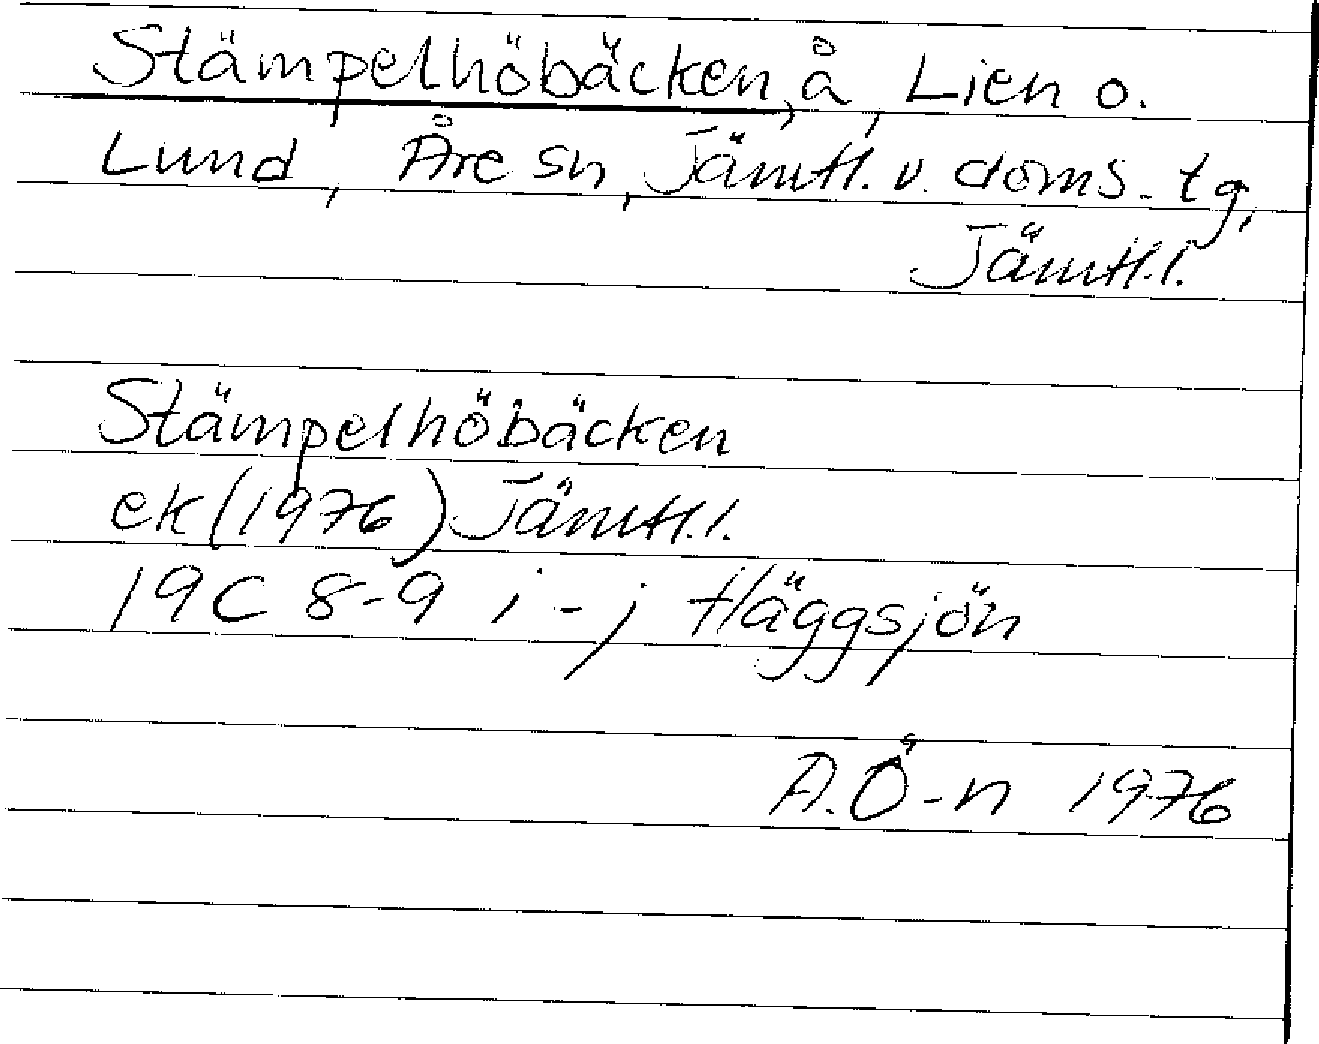 Stämpelhöbäcken, å, Lien o.
Lund, Åre sn, Jämtl. v. doms. tg,
Jämtl. l.
Stämpelhöbäcken
ek (1976) Jämtl. l.
19C 8-9 i-j Häggsjön
A.Ö-n 1976